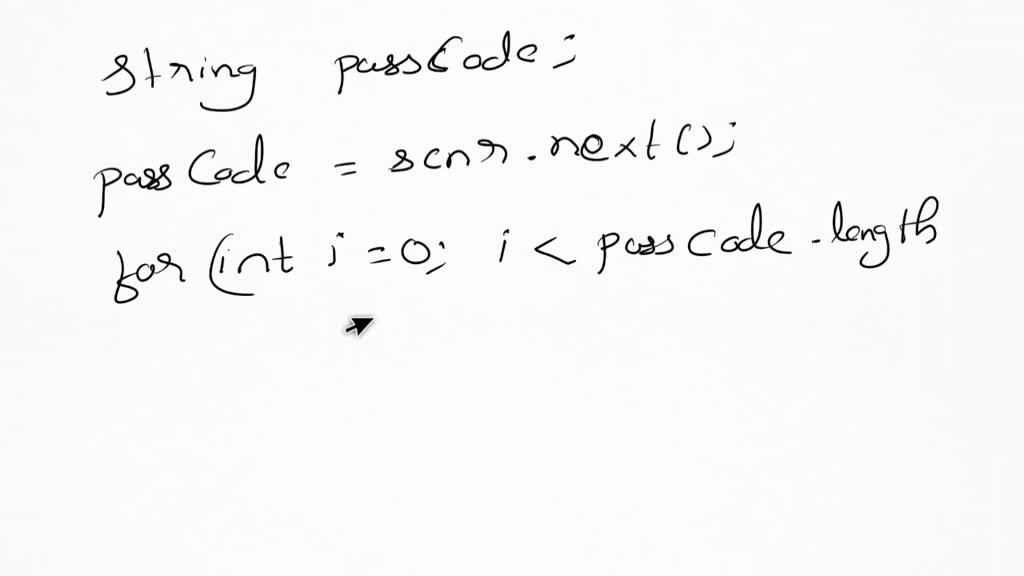 string passCode;
passCode = scnr.next();
for (int i=0; i < passCode.length